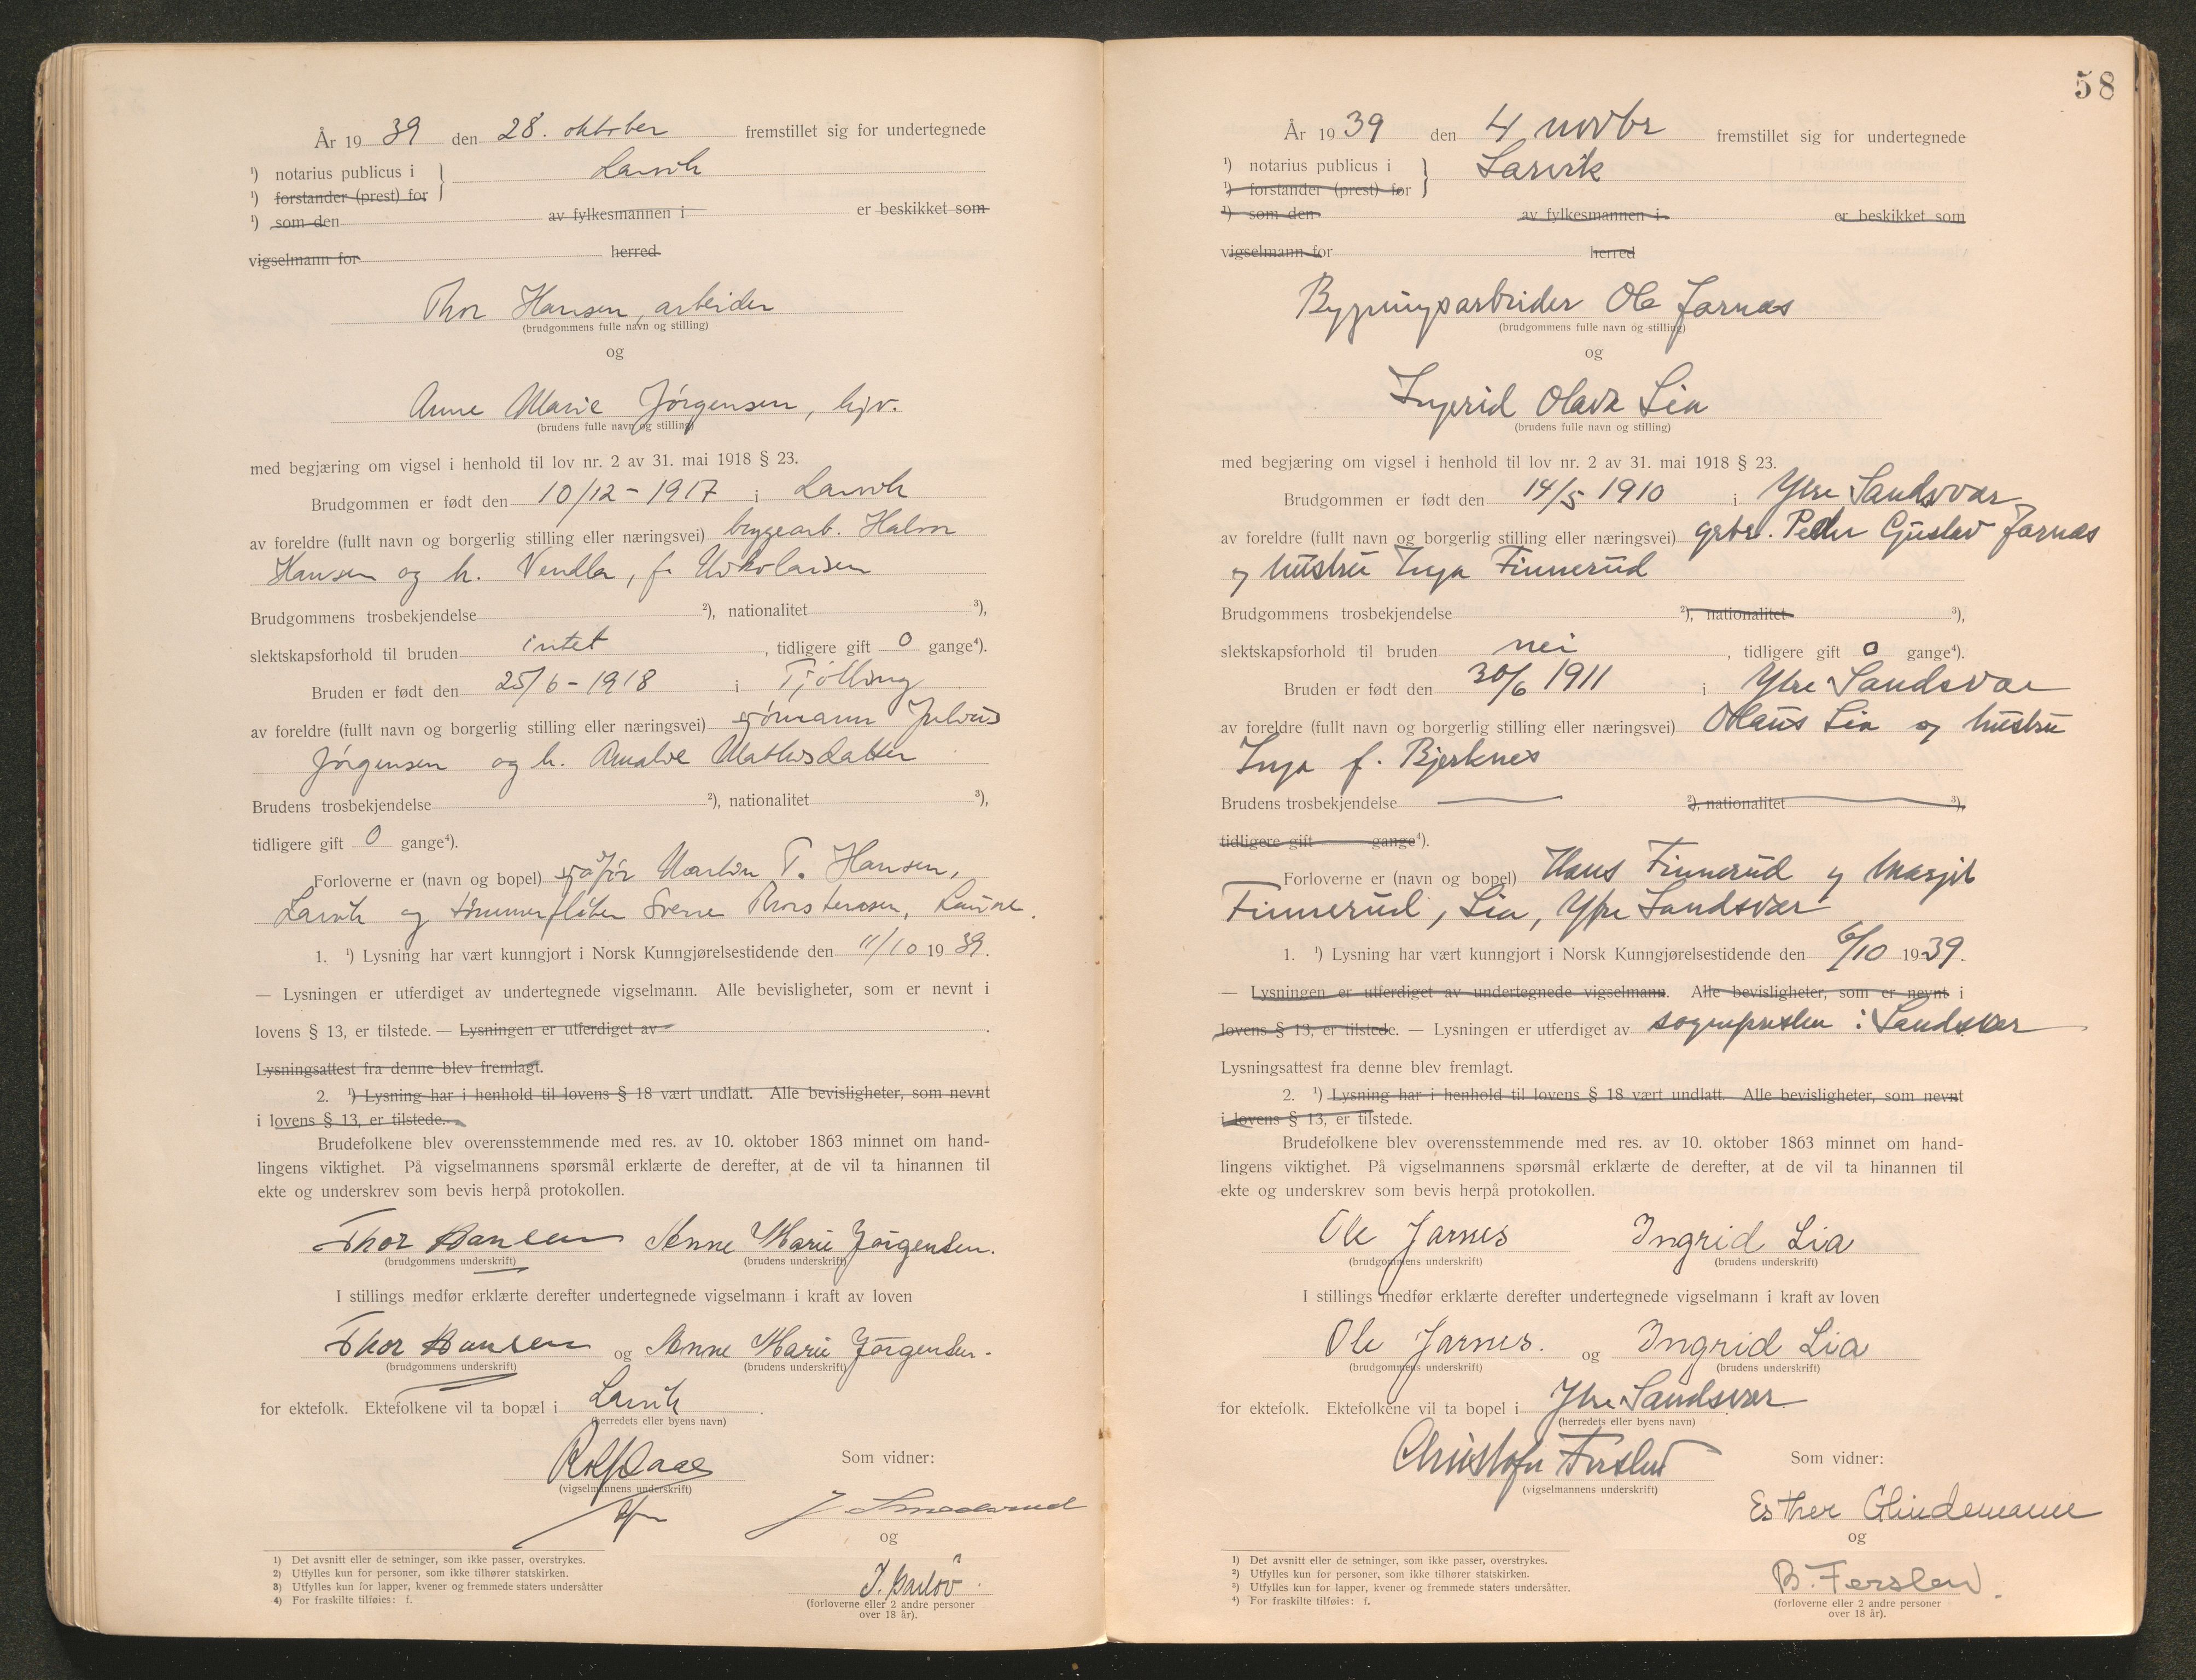 År 19 39 den 28. oktober fremstillet sig for undertegnede
¹) notarius publicus i } Larvik
¹) forstander (prest) for
¹) som den av fylkesmannen i er beskikket som
vigselmann for herred
Thor Hansen, arbeider
(brudgommens fulle navn og stilling)
og
Anne Marie Jörgensen, hjv.
(brudens fulle navn og stilling)
med begjæring om vigsel i henhold til lov nr. 2 av 31. mai 1918 § 23.
Brudgommen er født den 10/12 - 1917 i Larvik
av foreldre (fullt navn og borgerlig stilling eller næringsvei) bryggearb. Halvor
Hansen og h. Vendla, f. Nikolaisen
Brudgommens trosbekjendelse ²), nationalitet ³),
slektskapsforhold til bruden intet, tidligere gift 0 gange⁴).
Bruden er født den 25/6 - 1918 i Tjölling
av foreldre (fullt navn og borgerlig stilling eller næringsvei) sjömann Julius
Jørgensen og h. Amalie Mathisdatter
Brudens trosbekjendelse ²), nationalitet ³),
tidligere gift 0 gange⁴).
Forloverne er (navn og bopel) sjåfør Martin T. Hansen,
Larvik og tømmerfløter Sverre Thorstensen,
1. ¹) Lysning har vært kunngjort i Norsk Kunngjørelsestidende den 11/10 19 39.
— Lysningen er utferdiget av undertegnede vigselmann. Alle bevisligheter, som er nevnt i
lovens § 13, er tilstede. — Lysningen er utferdiget av
Lysningsattest fra denne blev fremlagt.
2. ¹) Lysning har i henhold til lovens § 18 vært undlatt. Alle bevisligheter, som nevnt
i lovens § 13, er tilstede.
Brudefolkene blev overensstemmende med res. av 10. oktober 1863 minnet om hand-
lingens viktighet. På vigselmannens spørsmål erklærte de derefter, at de vil ta hinannen til
ekte og underskrev som bevis herpå protokollen.
Thor Hansen Anne Marie Jörgensen.
(brudgommens underskrift) (brudens underskrift)
I stillings medfør erklærte derefter undertegnede vigselmann i kraft av loven
Thor Hansen og Anne Marie Jörgensen.
(brudgommens underskrift) (brudens underskrift)
for ektefolk. Ektefolkene vil ta bopæl i Larvik.
(herredets eller byens navn)
Som vidner:
(vigselmannens underskrift)
og
(forloverne eller 2 andre personer
over 18 år).
1) Det avsnitt eller de setninger, som ikke passer, overstrykes.
2) Utfylles kun for personer, som ikke tilhører statskirken.
3) Utfylles kun for lapper, kvener og fremmede staters undersåtter
4) For fraskilte tilføies: f.
58
År 19 39 den 4 novbr fremstillet sig for undertegnede
¹) notarius publicus i } Larvik
¹) forstander (prest) for
¹) som den av fylkesmannen i er beskikket som
vigselmann for herred
Bygningsarbeider Ole Jarnæs
(brudgommens fulle navn og stilling)
og
Ingerid Olava Lia
(brudens fulle navn og stilling)
med begjæring om vigsel i henhold til lov nr. 2 av 31. mai 1918 § 23.
Brudgommen er født den 14/5 1910 i Ytre Sandsvær
av foreldre (fullt navn og borgerlig stilling eller næringsvei) grbr. Peder Gustav Jarnæs
og hustru Inga Finnerud
Brudgommens trosbekjendelse ²), nationalitet ³),
slektskapsforhold til bruden nei, tidligere gift 0 gange⁴).
Bruden er født den 30/6 1911 i Ytre Sandsvær
av foreldre (fullt navn og borgerlig stilling eller næringsvei) Olaus Lia og hustru
Inga f. Bjerknes
Brudens trosbekjendelse ²), nationalitet ³),
tidligere gift gange⁴).
Forloverne er (navn og bopel) Hans Finnerud og Margit
Finnerud, Lia, Ytre Sandsvær
1. ¹) Lysning har vært kunngjort i Norsk Kunngjørelsestidende den 6/10 1939.
— Lysningen er utferdiget av undertegnede vigselmann. Alle bevisligheter, som er nevnt i
lovens § 13, er tilstede. — Lysningen er utferdiget av sognepresten i Sandsvær
Lysningsattest fra denne blev fremlagt.
2. ¹) Lysning har i henhold til lovens § 18 vært undlatt. Alle bevisligheter, som nevnt
i lovens § 13, er tilstede.
Brudefolkene blev overensstemmende med res. av 10. oktober 1863 minnet om hand-
lingens viktighet. På vigselmannens spørsmål erklærte de derefter, at de vil ta hinannen til
ekte og underskrev som bevis herpå protokollen.
Ole Jarnes Ingrid Lia
(brudgommens underskrift) (brudens underskrift)
I stillings medfør erklærte derefter undertegnede vigselmann i kraft av loven
Ole Jarnes. og Ingrid Lia
(brudgommens underskrift) (brudens underskrift)
for ektefolk. Ektefolkene vil ta bopel i Ytre Sandsvær
(herredets eller byens navn)
Christofer Ferslew Som vidner:
(vigselmannens underskrift)
Esther Glindemann
og
B. Ferslew.
(forloverne eller 2 andre personer
over 18 år).
¹) Det avsnitt eller de setninger, som ikke passer, overstrykes.
²) Utfylles kun for personer, som ikke tilhører statskirken.
³) Utfylles kun for lapper, kvener og fremmede staters undersåtter.
⁴) For fraskilte tilføies: f.